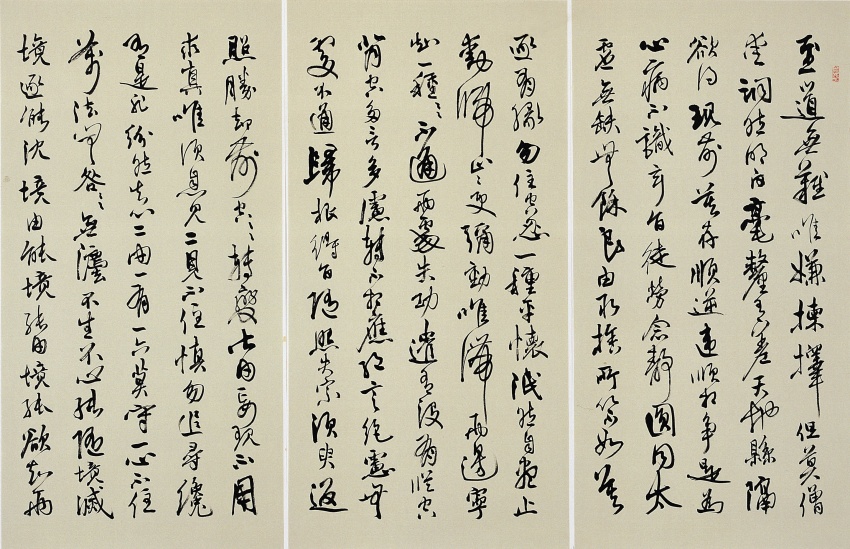 至道無難唯嫌揀擇但莫憎
愛洞然明白毫釐有差天地縣隔
欲得現前莫存順逆違順相爭是為
心病不識玄旨徒勞念靜圓同太
虛無缺無餘良由取捨所以不如莫
逐有緣勿住空忍一種平懷泯然自盡止
動歸止止更彌動唯滯兩邊寧
知一種々不通兩處失功遣有沒有從空
背空多言多慮轉不相應絕言絕慮無
處不通歸根得旨隨照失宗須臾返
照勝却前空々轉變皆由妄現不用
求真唯須息見二見不住慎勿追尋纔
有是非紛然失心二由一有一亦莫守一心不
萬法無咎々無法不生不心能隨境滅
境逐能沈境由能境能由境能欲知兩